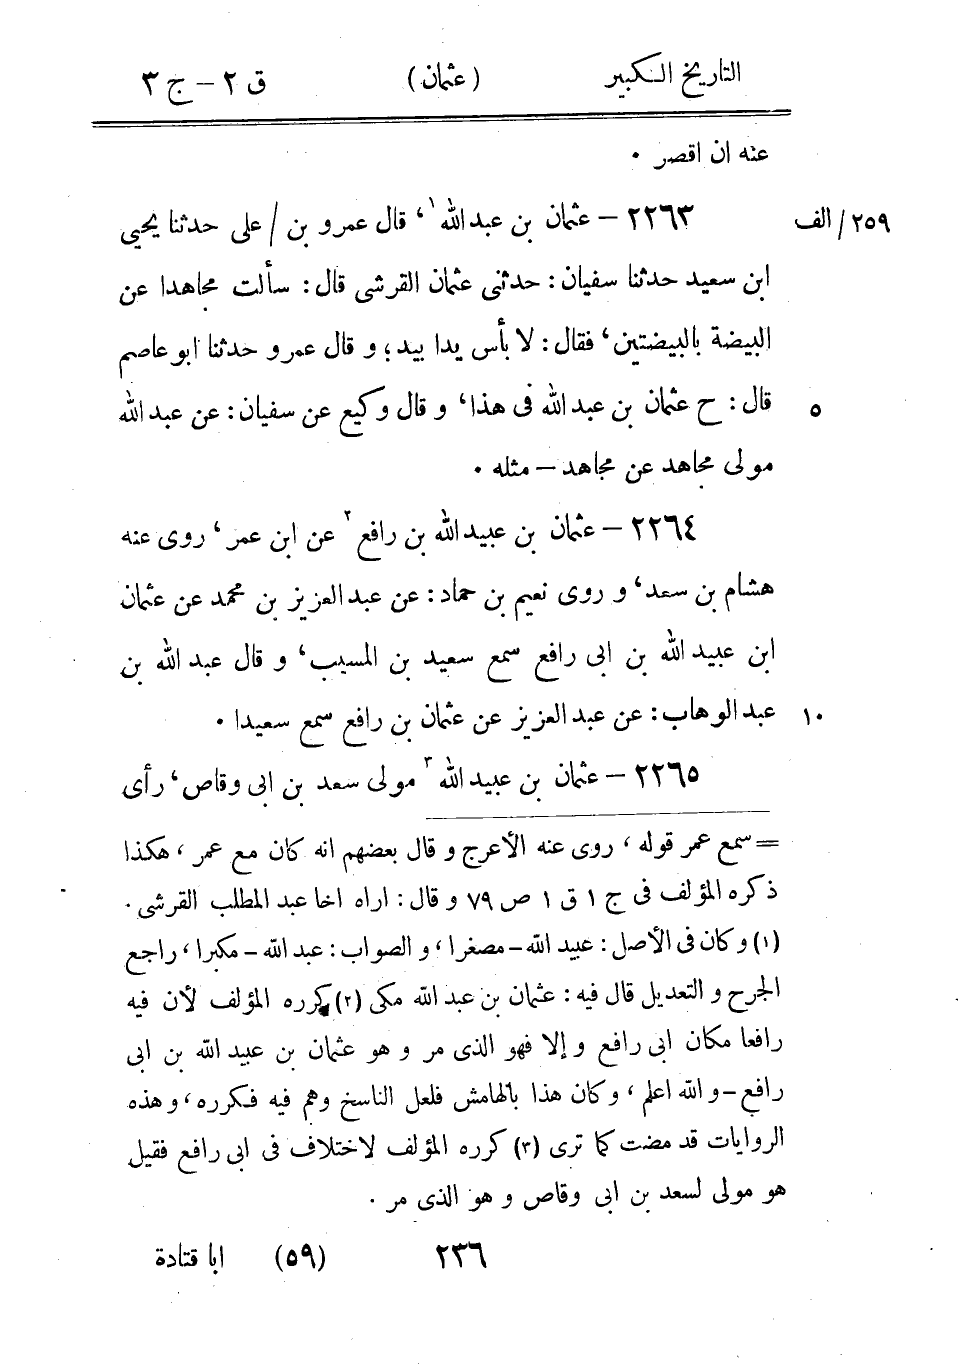 التاريخ الكبير (عثمان) ق ٢ - ج ٣
عنه ان اقصر ٠
٢٥٩/الف ٢٢٦٣ - عثمان بن عبد الله ١‘ قال عمرو بن / على حدثنا يحيى
ابن سعيد حدثنا سفيان : حدثنى عثمان القرشى قال : سألت مجاهدا عن
البيضة بالبيضتين‘ فقال : لا بأس يدا بيد ؛ و قال عمرو حدثنا ابو عاصم
٥ قال : ح عثمان بن عبد الله فى هذا‘ و قال وكيع عن سفيان : عن عبد الله
مولى مجاهد عن مجاهد - مثله ٠
٢٢٦٤ - عثمان بن عبيد الله بن رافع ٢ عن ابن عمر‘ روى عنه
هشام بن سعد‘ و روى نعيم بن حماد : عن عبد العزيز بن محمد عن عثمان
ابن عبيد الله بن ابى رافع سمع سعيد بن المسيب‘ و قال عبد الله بن
١٠ عبد الوهاب : عن عبد العزيز عن عثمان بن رافع سمع سعيدا ٠
٢٢٦٥ - عثمان بن عبيد الله ٣ مولى سعد بن ابى وقاص‘ رأى
= سمع عمر قوله ، روى عنه الأعرج و قال بعضهم انه كان مع عمر ، هكذا
ذكره المؤلف فى ج ١ ق ١ ص ٧٩ و قال : اراه اخا عبد المطلب القرشى ٠
(١) و كان فى الأصل : عبيد الله - مصغرا ، و الصواب : عبد الله - مكبرا ، راجع
الجرح و التعديل قال فيه : عثمان بن عبد الله مكى (٢) كرره المؤلف لأن فيه
رافعا مكان ابى رافع و إلا فهو الذى مر و هو عثمان بن عبيد الله بن ابى
رافع - و الله اعلم ، و كان هذا بالهامش فلعل الناسخ وهم فيه فكرره ، و هذه
الروايات قد مضت كما ترى (٣) كرره المؤلف لاختلاف فى ابى رافع فقيل
هو مولى لسعد بن ابى وقاص و هو الذى مر ٠
٢٣٦ (٥٩) ابا قتادة